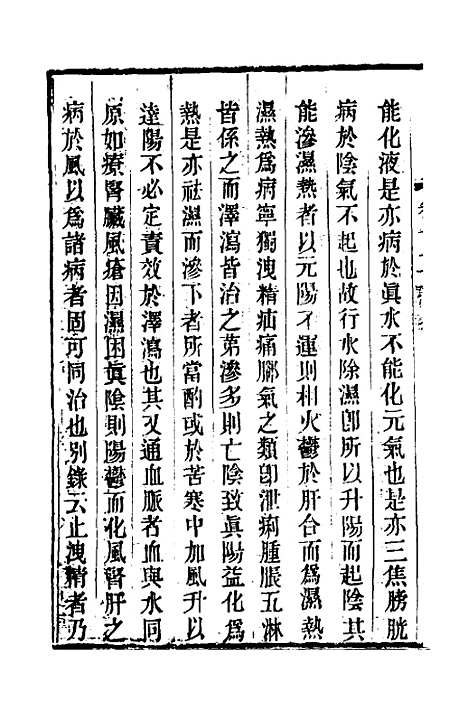 能化液是亦病於眞水不能化元氣也是亦三焦膀胱
病於陰氣不起也故行水除濕卽所以升陽而起陰其
能滲濕熱者以元陽不運則相火鬱於肝合而爲濕熱
濕熱爲病寧獨洩精疝痛腳氣之類卽泄痢腫脹五淋
皆係之而澤瀉皆治之第滲多則亡陰致眞陽益化爲
熱是亦祛濕而滲下者所當酌或於苦寒中加風升以
達陽不必定責效於澤瀉也其又通血脈者血與水同
原如療腎臟風瘡因濕困眞陰則陽鬱而化風腎肝之
病於風以爲諸病者固可同治也別錄云止洩精者乃